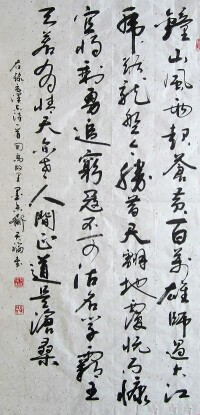 鐘山風雨起蒼黃百萬雄師過大江
虎踞龍盤今勝昔天翻地覆慨而慷
宜將剩勇追窮寇不可沽名學霸王
天若有情天亦老人間正道是滄桑
右錄毛澤東詩一首